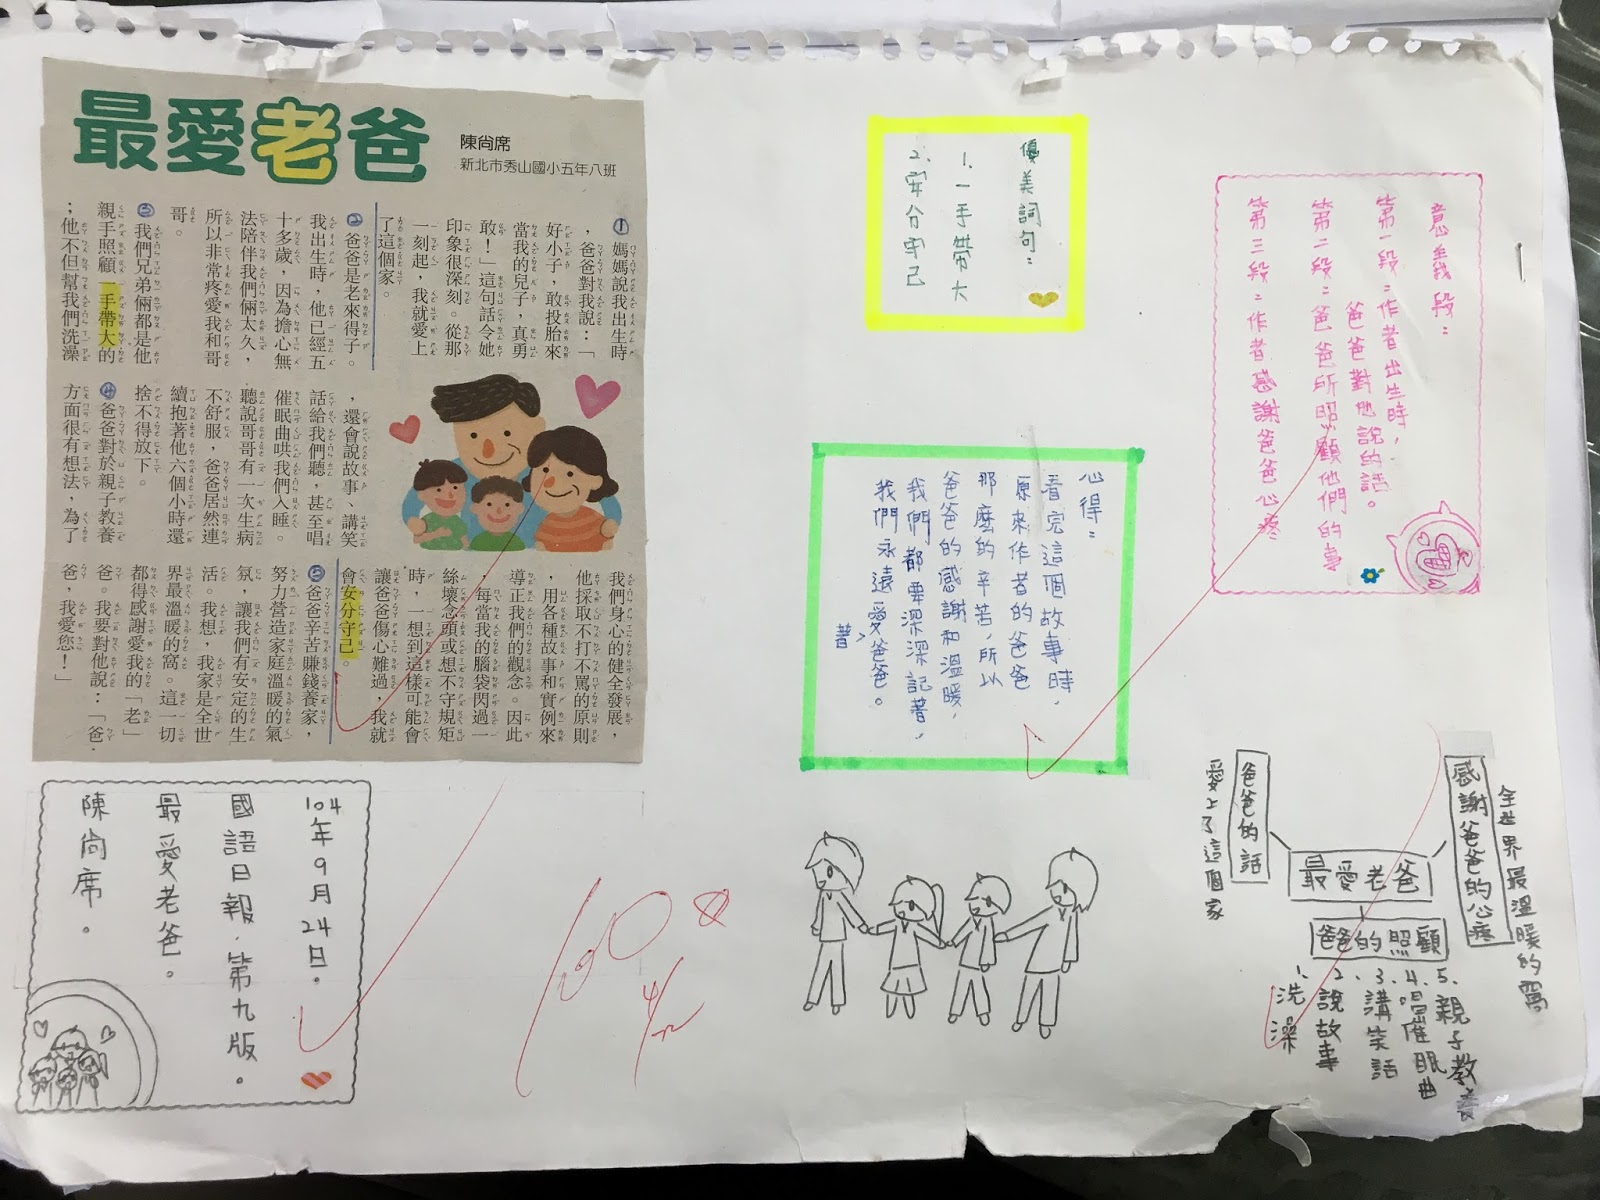 最愛老爸
陳尙席
新北市秀山國小五年八班
①媽媽說我出生時
，爸爸對我說：「
好小子，敢投胎來
當我的兒子，真勇
敢！」這句話令她
印象很深刻。從那
一刻起，我就愛上
了這個家。
②爸爸是老來得子。
我出生時，他已經五
十多歲，因為擔心無
法陪伴我們倆太久，
所以非常疼愛我和哥
哥。
③我們兄弟倆都是他
親手照顧一手帶大的
；他不但幫我們洗澡
，還會說故事、講笑
話給我們聽，甚至唱
催眠曲哄我們入睡。
聽說哥哥有一次生病
不舒服，爸爸居然連
續抱著他六個小時還
捨不得放下。
④爸爸對於親子教養
方面很有想法，為了
我們身心的健全發展，
他採取不打不罵的原則
，用各種故事和實例來
導正我們的觀念。因此
，每當我的腦袋閃過一
絲壞念頭或想不守規矩
時，一想到這樣可能會
讓爸爸傷心難過，我就
會安分守己。
⑤爸爸辛苦賺錢養家，
努力營造家庭溫暖的氣
氛，讓我們有安定的生
活。我想，我家是全世
界最溫暖的窩。這一切
都得感謝愛我的「老」
爸。我要對他說：「爸
爸，我愛您！」
優美詞句：
1.一手帶大
2.安分守己
意義段：
第一段：作者出生時，
爸爸對他說的話。
第二段：爸爸所照顧他們的事
第三段：作者感謝爸爸心疼
心得：
看完這個故事時，
原來作者的爸爸
那麼的辛苦，所以
爸爸的感謝和溫暖，
我們都要深深記著，
我們永遠愛爸爸。
著
104年9月24日。
國語日報.第九版。
最愛老爸。
陳尙席。
100
全世界最溫暖的窩
感謝爸爸的心疼
最愛老爸
爸爸的話
愛上了這個家
爸爸的照顧
1.洗澡
2.說故事
3.講笑話
4.唱催眠曲
5.親子教養